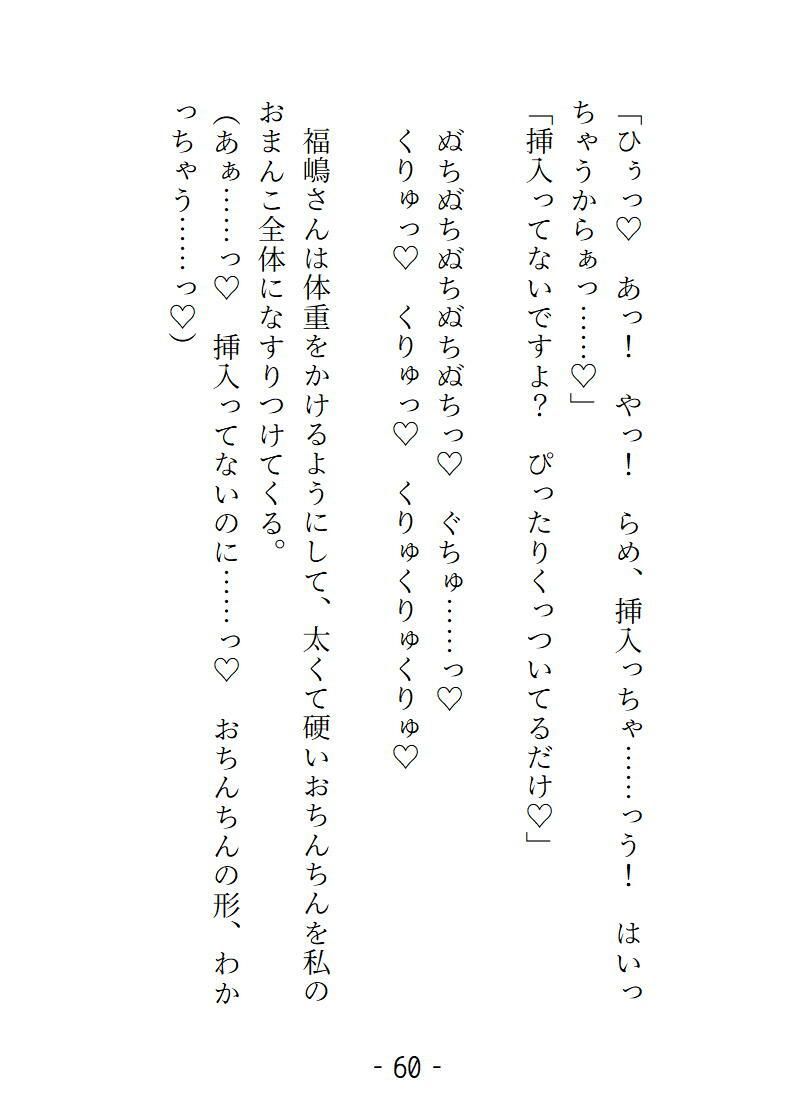 「ひぅっ♡　あっ！　やっ！　らめ、挿入っちゃ……っう！　はいっ
ちゃうからぁっ……♡」
「挿入ってないですよ？　ぴったりくっついてるだけ♡」
ぬ゛ちぬ゛ちぬ゛ちぬ゛ちぬ゛ちっ♡　ぐちゅ……っ♡
くりゅっ♡　くりゅっ♡　くりゅくりゅくりゅ♡
福嶋さんは体重をかけるようにして、太くて硬いおちんちんを私の
おまんこ全体になすりつけてくる。
（あぁ……っ♡　挿入ってないのに……っ♡　おちんちんの形、わか
っちゃう……っ♡）
- 60 -